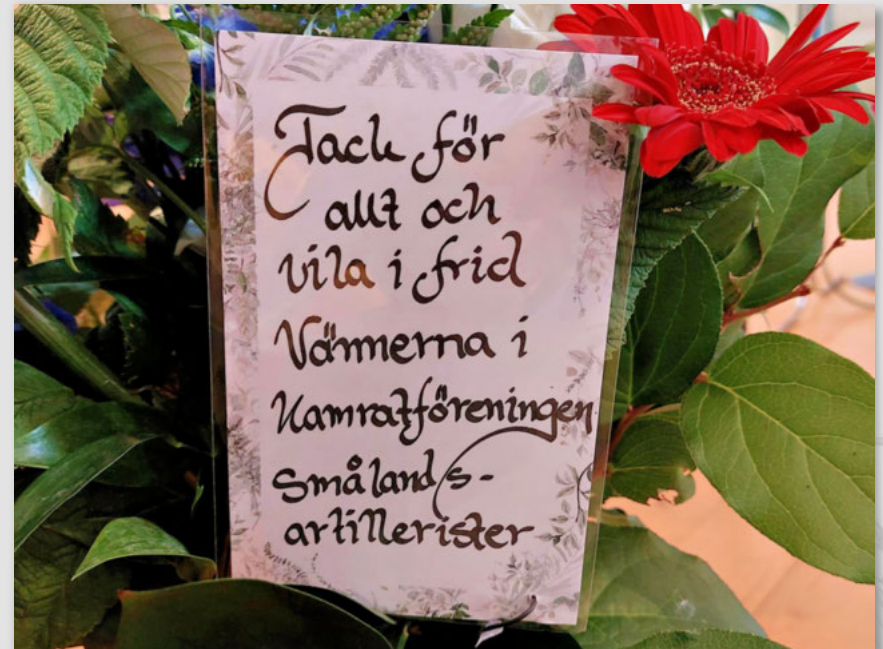 Tack för
allt och
vila i frid
Vännerna i
Kamratföreningen
Smålands-
artillerister